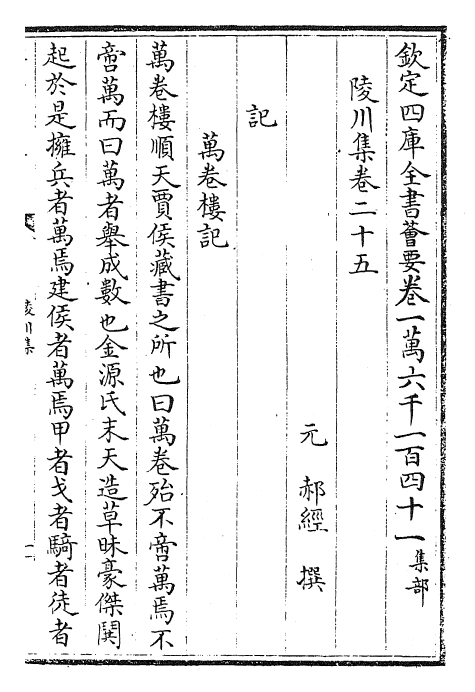 欽定四庫全書薈要卷一萬六千一百四十一集部
陵川集卷二十五
元 郝經 撰
記
萬卷樓記
萬卷樓順天賈侯藏書之所也曰萬卷殆不啻萬焉不
啻萬而曰萬者舉成數也金源氏末天造草昧豪傑鬨
起於是擁兵者萬焉建侯者萬焉甲者戈者騎者徒者
陵川集
一